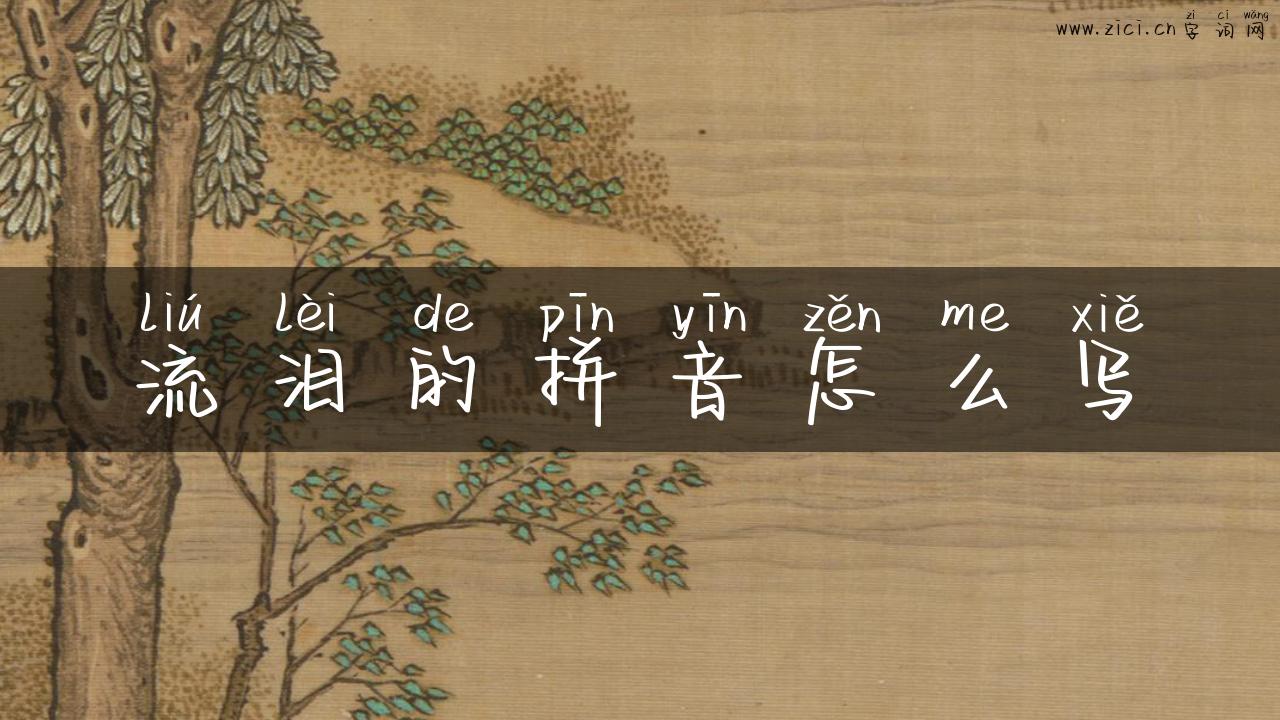 zì cí wǎng
www.zici.cn字词网
liú lèi de pīn yīn zěn me xiě
流泪的拼音怎么写